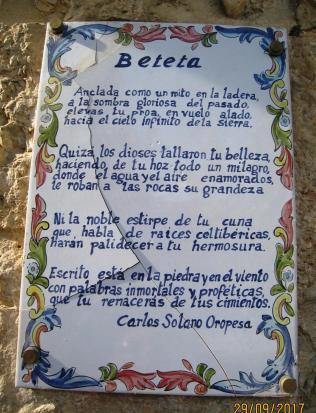 Beteta
Anclada como un mito en la ladera,
a la sombra gloriosa del pasado,
elevas tu proa, en vuelo alado,
hacia el cielo infinito de la sierra.
Quizá, los dioses tallaron tu belleza,
haciendo, de tu hoz todo un milagro,
donde el agua y el aire enamorados,
te roban a las rocas su grandeza
Ni la noble estirpe de tu cuna
que, habla de raíces celtibéricas,
harán palidecer a tu hermosura.
Escrito está en la piedra y en el viento
con palabras inmortales y proféticas,
que tu renacerás de tus cimientos.
Carlos Solano Oropesa
29/09/2017